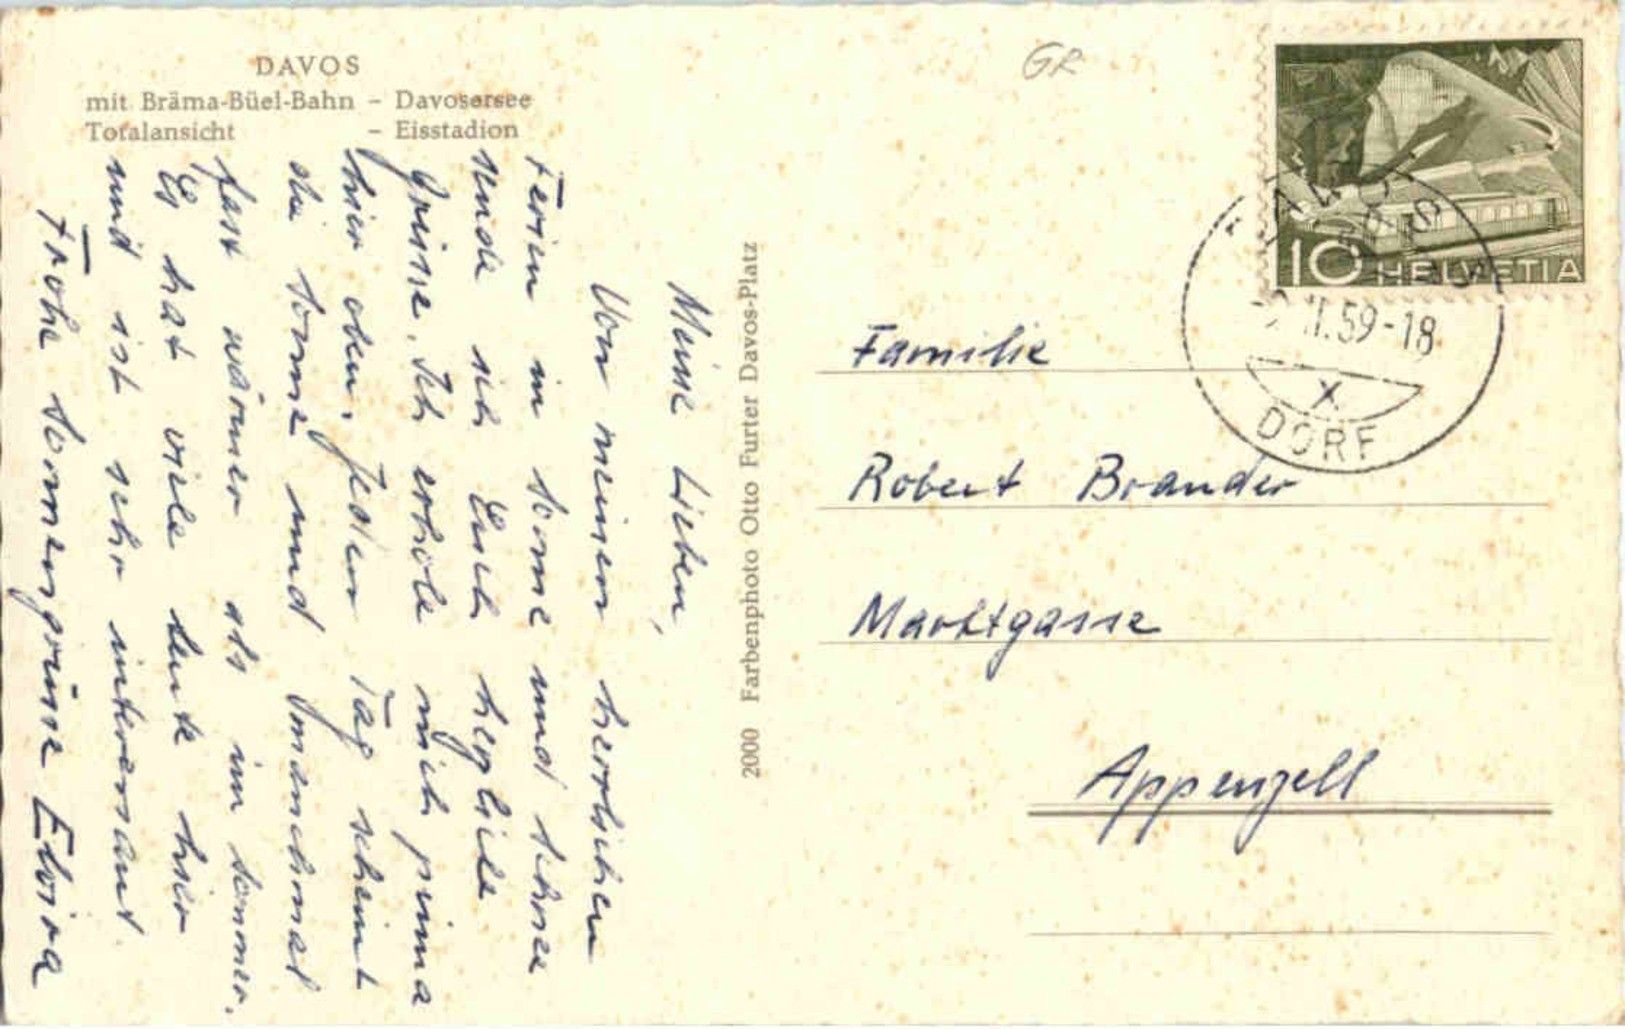 DAVOS
mit Bräma-Büel-Bahn – Davosersee
Totalansicht – Eisstadion
Meine Lieben,
Von meinen herrlichen
Ferien in Sonne und Schnee
sende ich Euch herzliche
Grüsse. Ich erhole mich prima
hier oben. Jeden Tag scheint
die Sonne und manchmal
fast wärmer als im Sommer.
Es hat viele Leute hier
und ist sehr interessant.
Frohe Sonnengrüsse Elvira
2000 Farbenphoto Otto Furter Davos-Platz
GR
10 HELVETIA
DAVOS
II.59-18
X
DORF
Familie
Robert Brander
Marktgasse
Appenzell